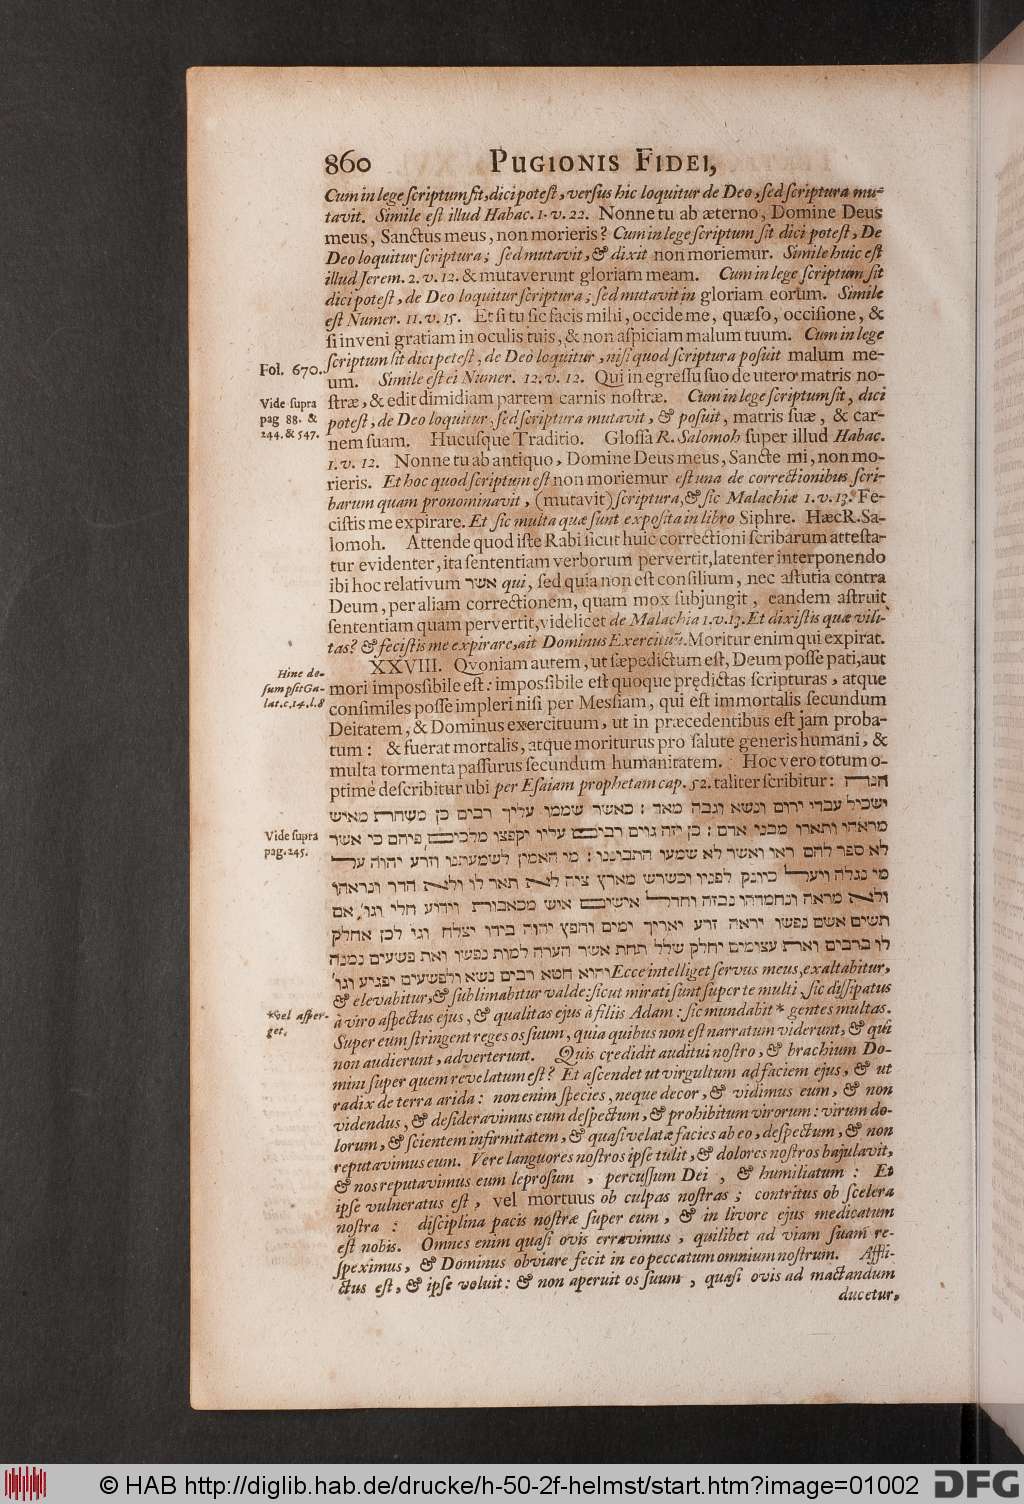 860 PUGIONIS FIDEI,
Cum in lege scriptum sit, dici potest, versus hic loquitur de Deo, sed scriptura mu-
tavit. Simile est illud Habac. 1. v. 22. Nonne tu ab æterno, Domine Deus
meus, Sanctus meus, non morieris? Cum in lege scriptum sit dici potest, De
Deo loquitur scriptura; sed mutavit, & dixit non moriemur. Simile huic est
illud Jerem. 2. v. 12. & mutaverunt gloriam meam. Cum in lege scriptum sit
dici potest, de Deo loquitur scriptura; sed mutavit in gloriam eorum. Simile
est Numer. 11. v. 15. Et si tu sic facis mihi, occide me, quæso, occisione, &
si inveni gratiam in oculis tuis, & non aspiciam malum tuum. Cum in lege
scriptum sit dici petest, de Deo loquitur, nisi quod scriptura posuit malum me-
Fol. 670.
um. Simile est ei Numer. 12. v. 12. Qui in egressu suo de utero matris no-
stræ, & edit dimidiam partem carnis nostræ. Cum in lege scriptum sit, dici
Vide supra
pag 88. &
244. & 547.
potest, de Deo loquitur, sed scriptura mutavit, & posuit, matris suæ, & car-
nem suam. Hucusque Traditio. Glossa R. Salomoh super illud Habac.
1. v. 12. Nonne tu ab antiquo, Domine Deus meus, Sancte mi, non mo-
rieris. Et hoc quod scriptum est non moriemur est una de correctionibus scri-
barum quam pronominavit, (mutavit) scriptura, & sic Malachiæ 1. v. 13. Fe-
cistis me expirare. Et sic multa quæ sunt exposita in libro Siphre. Hæc R. Sa-
lomoh. Attende quod iste Rabi sicut huic correctioni scribarum attesta-
tur evidenter, ita sententiam verborum pervertit, latenter interponendo
ibi hoc relativum אשר qui, sed quia non est consilium, nec astutia contra
Deum, per aliam correctionem, quam mox subjungit, eandem astruit
sententiam quam pervertit, videlicet de Malachia 1. v. 13. Et dixistis quæ visi-
tas? & fecistis me expirare, ait Dominus Exercituũ. Moritur enim qui expirat.
XXVIII. Qvoniam autem, ut sæpedictum est, Deum posse pati, aut
Hinc de-
sumpsit Ga-
lat. c. 14. l. 8
mori impossibile est: impossibile est quoque prędictas scripturas, atque
consimiles posse impleri nisi per Messiam, qui est immortalis secundum
Deitatem, & Dominus exercituum, ut in præcedentibus est jam proba-
tum: & fuerat mortalis, atque moriturus pro salute generis humani, &
multa tormenta passurus secundum humanitatem. Hoc vero totum o-
ptime describitur ubi per Esaiam prophetam cap. 52. taliter scribitur: הנה
ישכיל עבדי ירום ונשא וגבה מאד: כאשר שממו עליך רבים כן משחת מאיש
Vide supra
pag. 245.
מראהו ותארו מבני אדם: כן יזה גוים רבים עליו יקפצו מלכים פיהם כי אשר
לא ספר להם ראו ואשר לא שמעו התבוננו: מי האמין לשמעתנו וזרע יהוה על
מי נגלה ויעל כיונק לפניו וכשרש מארץ ציה לא תאר לו ולא הדר ונראהו
ולא מראה ונחמדהו נבזה וחדל אישים איש מכאבות וידוע חלי וגו', אם
תשים אשם נפשו יראה זרע יאריך ימים וחפץ יהוה בידו יצלח וגו' לכן אחלק
לו ברבים ואת עצומים יחלק שלל תחת אשר הערה למות נפשו ואת פשעים נמנה
והוא חטא רבים נשא ולפשעים יפגיע וגו' Ecce intelliget servus meus, exaltabitur,
& elevabitur, & sublimabitur valde: sicut mirati sunt super te multi, sic dissipatus
*vel asper-
get.
à viro aspectus ejus, & qualitas ejus à filiis Adam: sic mundabit * gentes multas.
Super eum stringent reges os suum, quia quibus non est narratum viderunt, & qui
non audierunt, adverterunt. Quis credidit auditui nostro, & brachium Do-
mini super quem revelatum est? Et ascendet ut virgultum ad faciem ejus, & ut
radix de terra arida: non enim species, neque decor, & vidimus eum, & non
videndus, & desideravimus eum despectum, & prohibitum virorum: virum do-
lorum, & scientem infirmitatem, & quasi velatæ facies ab eo, despectum, & non
reputavimus eum. Vere languores nostros ipse tulit, & dolores nostros bajulavit,
& nos reputavimus eum leprosum, percussum Dei, & humiliatum: Et
ipse vulneratus est, vel mortuus ob culpas nostras; contritus ob scelera
nostra: disciplina pacis nostræ super eum, & in livore ejus medicatum
est nobis. Omnes enim quasi ovis erravimus, quilibet ad viam suam re-
speximus, & Dominus obviare fecit in eo peccatum omnium nostrum. Affli-
ctus est, & ipse voluit: & non aperuit os suum, quasi ovis ad mactandum
ducetur,
© HAB http://diglib.hab.de/drucke/h-50-2f-helmst/start.htm?image=01002 DFG